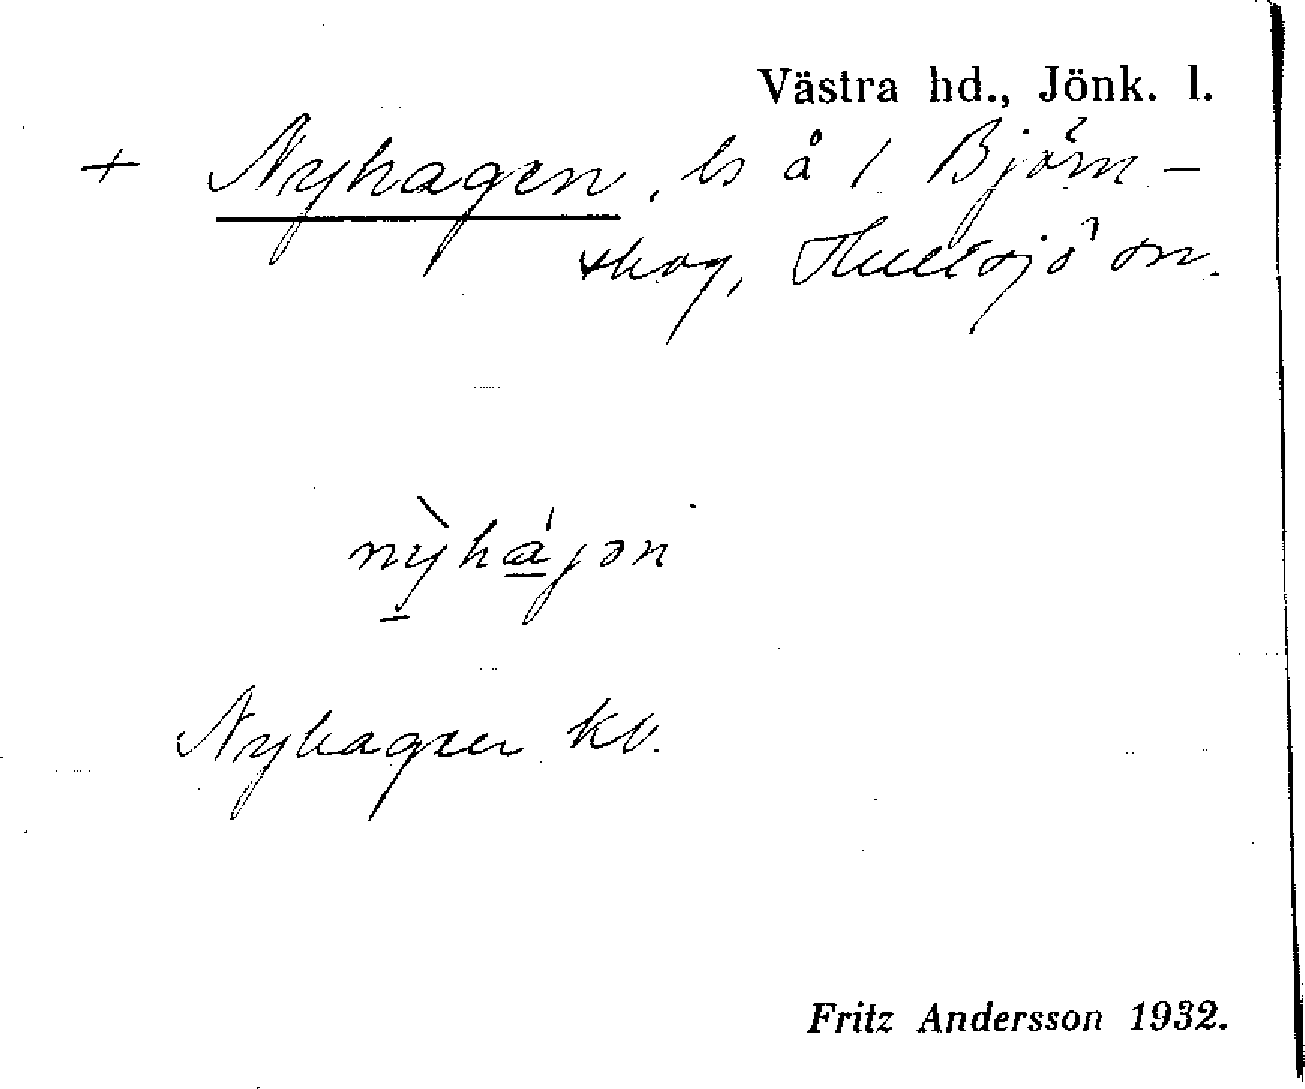 Västra hd., Jönk. l.
+ Nyhagen, ls å 1 Björn-
skog, Hultsjö sn.
nỳhájən
Nyhagen kv.
Fritz Andersson 1932.